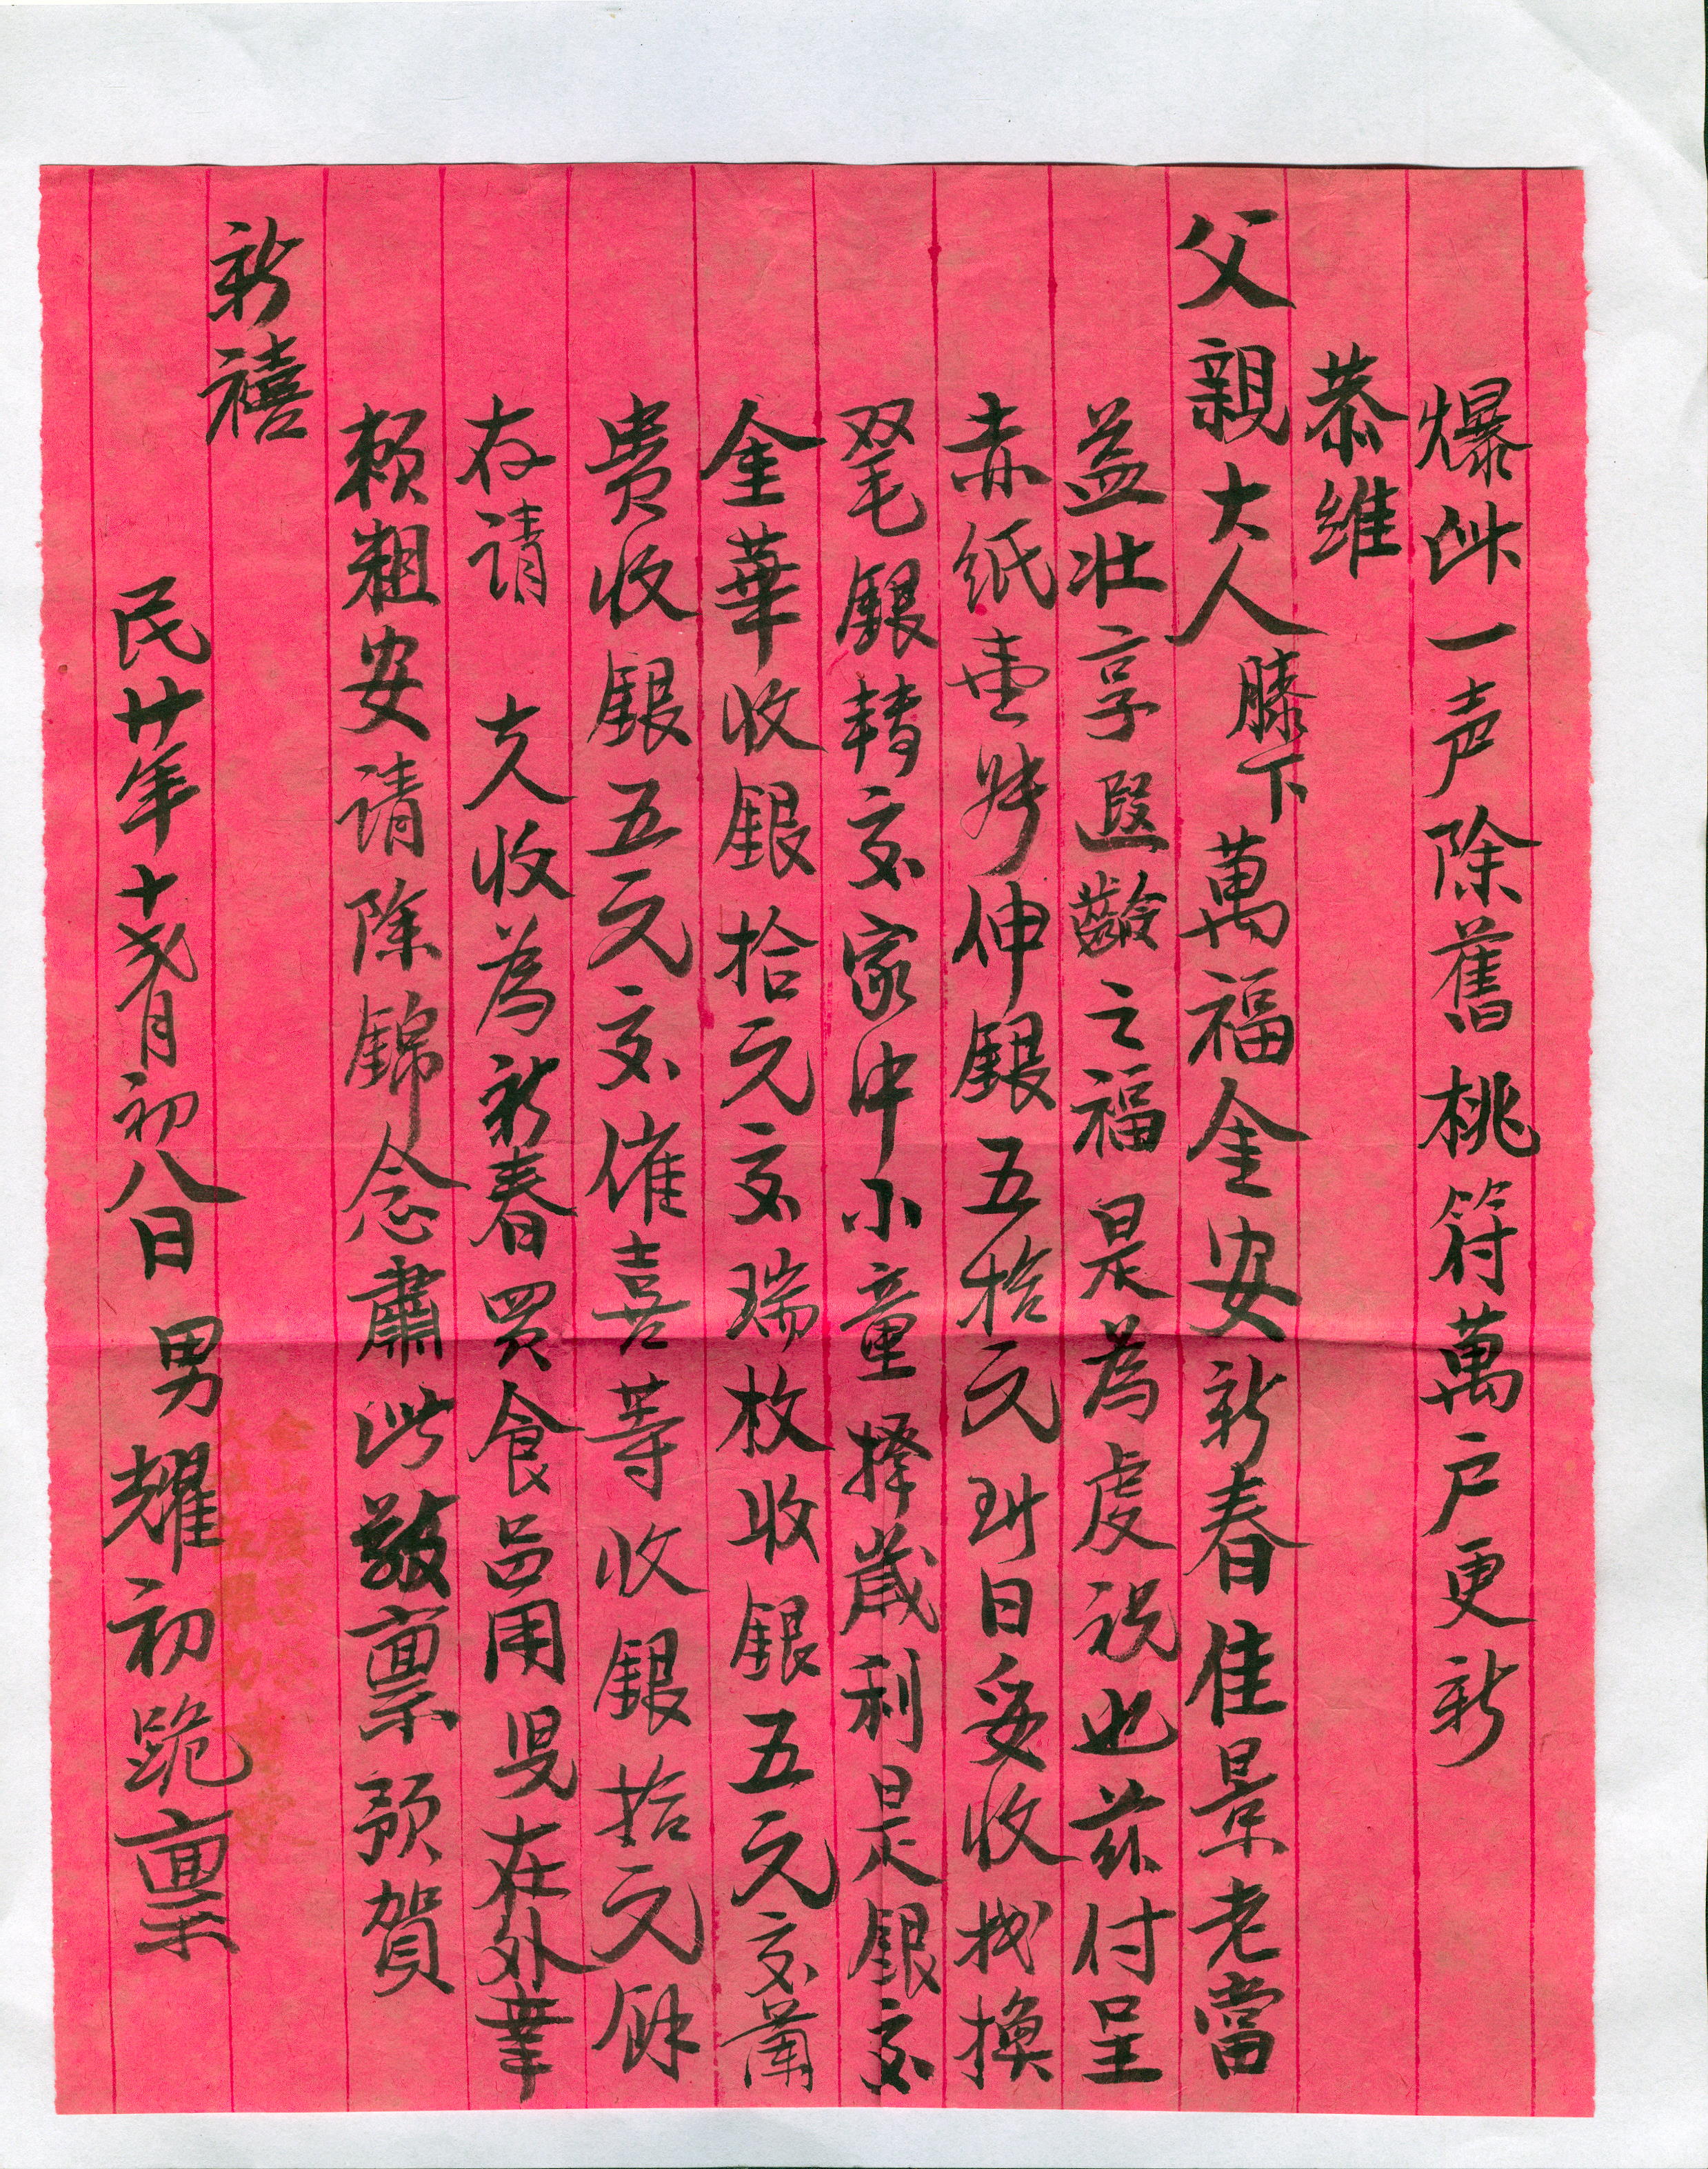 爆竹一声除舊桃符萬戶更新
恭維
父親大人膝下萬福金安新春佳景老當
益壯享遐齡之福是為虔祝也兹付呈
赤紙壹時伸銀五拾元到日妥收找換
双毛銀轉交家中小童擇歲利是銀交
金華收銀拾元交瑞枚收銀五元交蘭
贵收銀五元交催喜等收銀拾元餘
存请 大人收為新春買食品用儿在外幸
赖粗安请除錦念肅此敬禀預賀
新禧
民廿年十弍月初八日 男耀初跪禀